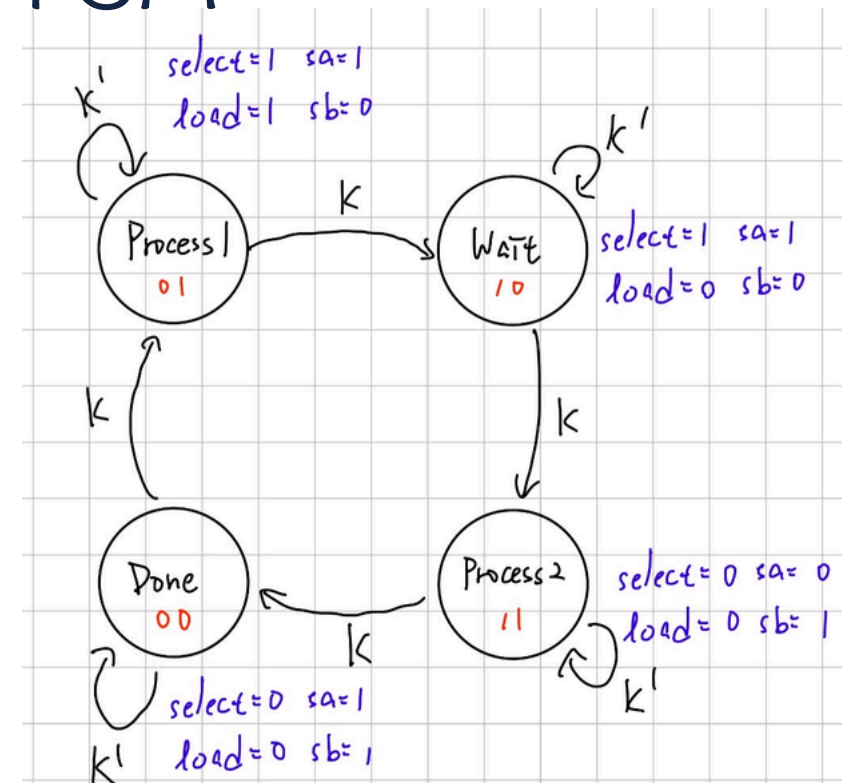 select=1 sa=1
k'
load=1 sb=0
k'
K
Process1
01
Wait
10
select=1 sa=1
load=0 sb=0
K
k
Done
00
Process2
11
select=0 sa=0
load=0 sb=1
K
k'
select=0 sa=1
load=0 sb=1
k'